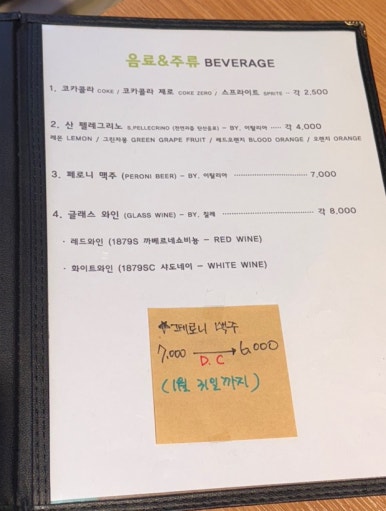 음료&주류 BEVERAGE
1. 코카콜라 COKE / 코카콜라 제로 COKE ZERO / 스프라이트 SPRITE ·· 각 2,500
2. 산 펠레그리노 S.PELLECRINO (천연과즙 탄산음료) – BY. 이탈리아 ····· 각 4,000
레몬 LEMON / 그린자몽 GREEN GRAPE FRUIT / 레드오렌지 BLOOD ORANGE / 오렌지 ORANGE
3. 페로니 맥주 (PERONI BEER) – BY. 이탈리아 ························ 7,000
4. 글래스 와인 (GLASS WINE) – BY. 칠레 ························ 각 8,000
· 레드와인 (1879S 까베르네쇼비뇽 – RED WINE)
· 화이트와인 (1879SC 샤도네이 – WHITE WINE)
*페로니 맥주
7,000 → 6,000
D.C
(1월 31일까지)